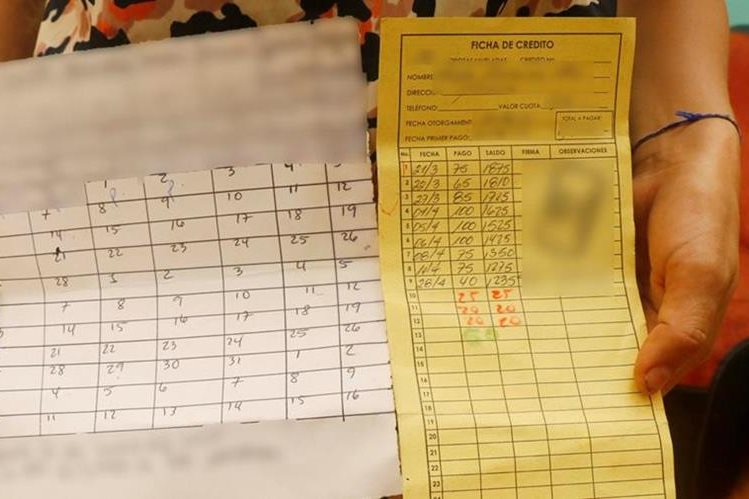 1 2 3 4 5
7 8 9 10 11 12
14 15 16 17 18 19
21 22 23 24 25 26
28 2 3 4 5
7 8 9 10 11 12
14 15 16 17 18 19
21 22 23 24 25 26
28 29 30 31 1 2
4 5 6 7 8 9
11 12 13 14 15 16
FICHA DE CREDITO
NOMBRE
DIRECC
TELÉFONO VALOR CUOTA
FECHA OTORGAMI
TOTAL A PAGAR
FECHA PRIMER PAGO
No. FECHA PAGO SALDO FIRMA OBSERVACIONES
1 21/3 75 1875
2 65 1810
3 27/3 85 1725
4 04/4 100 1625
5 05/4 100 1525
6 06/4 100 1425
7 08/4 75 1350
8 75 1275
9 28/4 40 1235
10 25 25
11 20 20
12 20 20
13
14
15
16
17
18
19
20
21
22
23